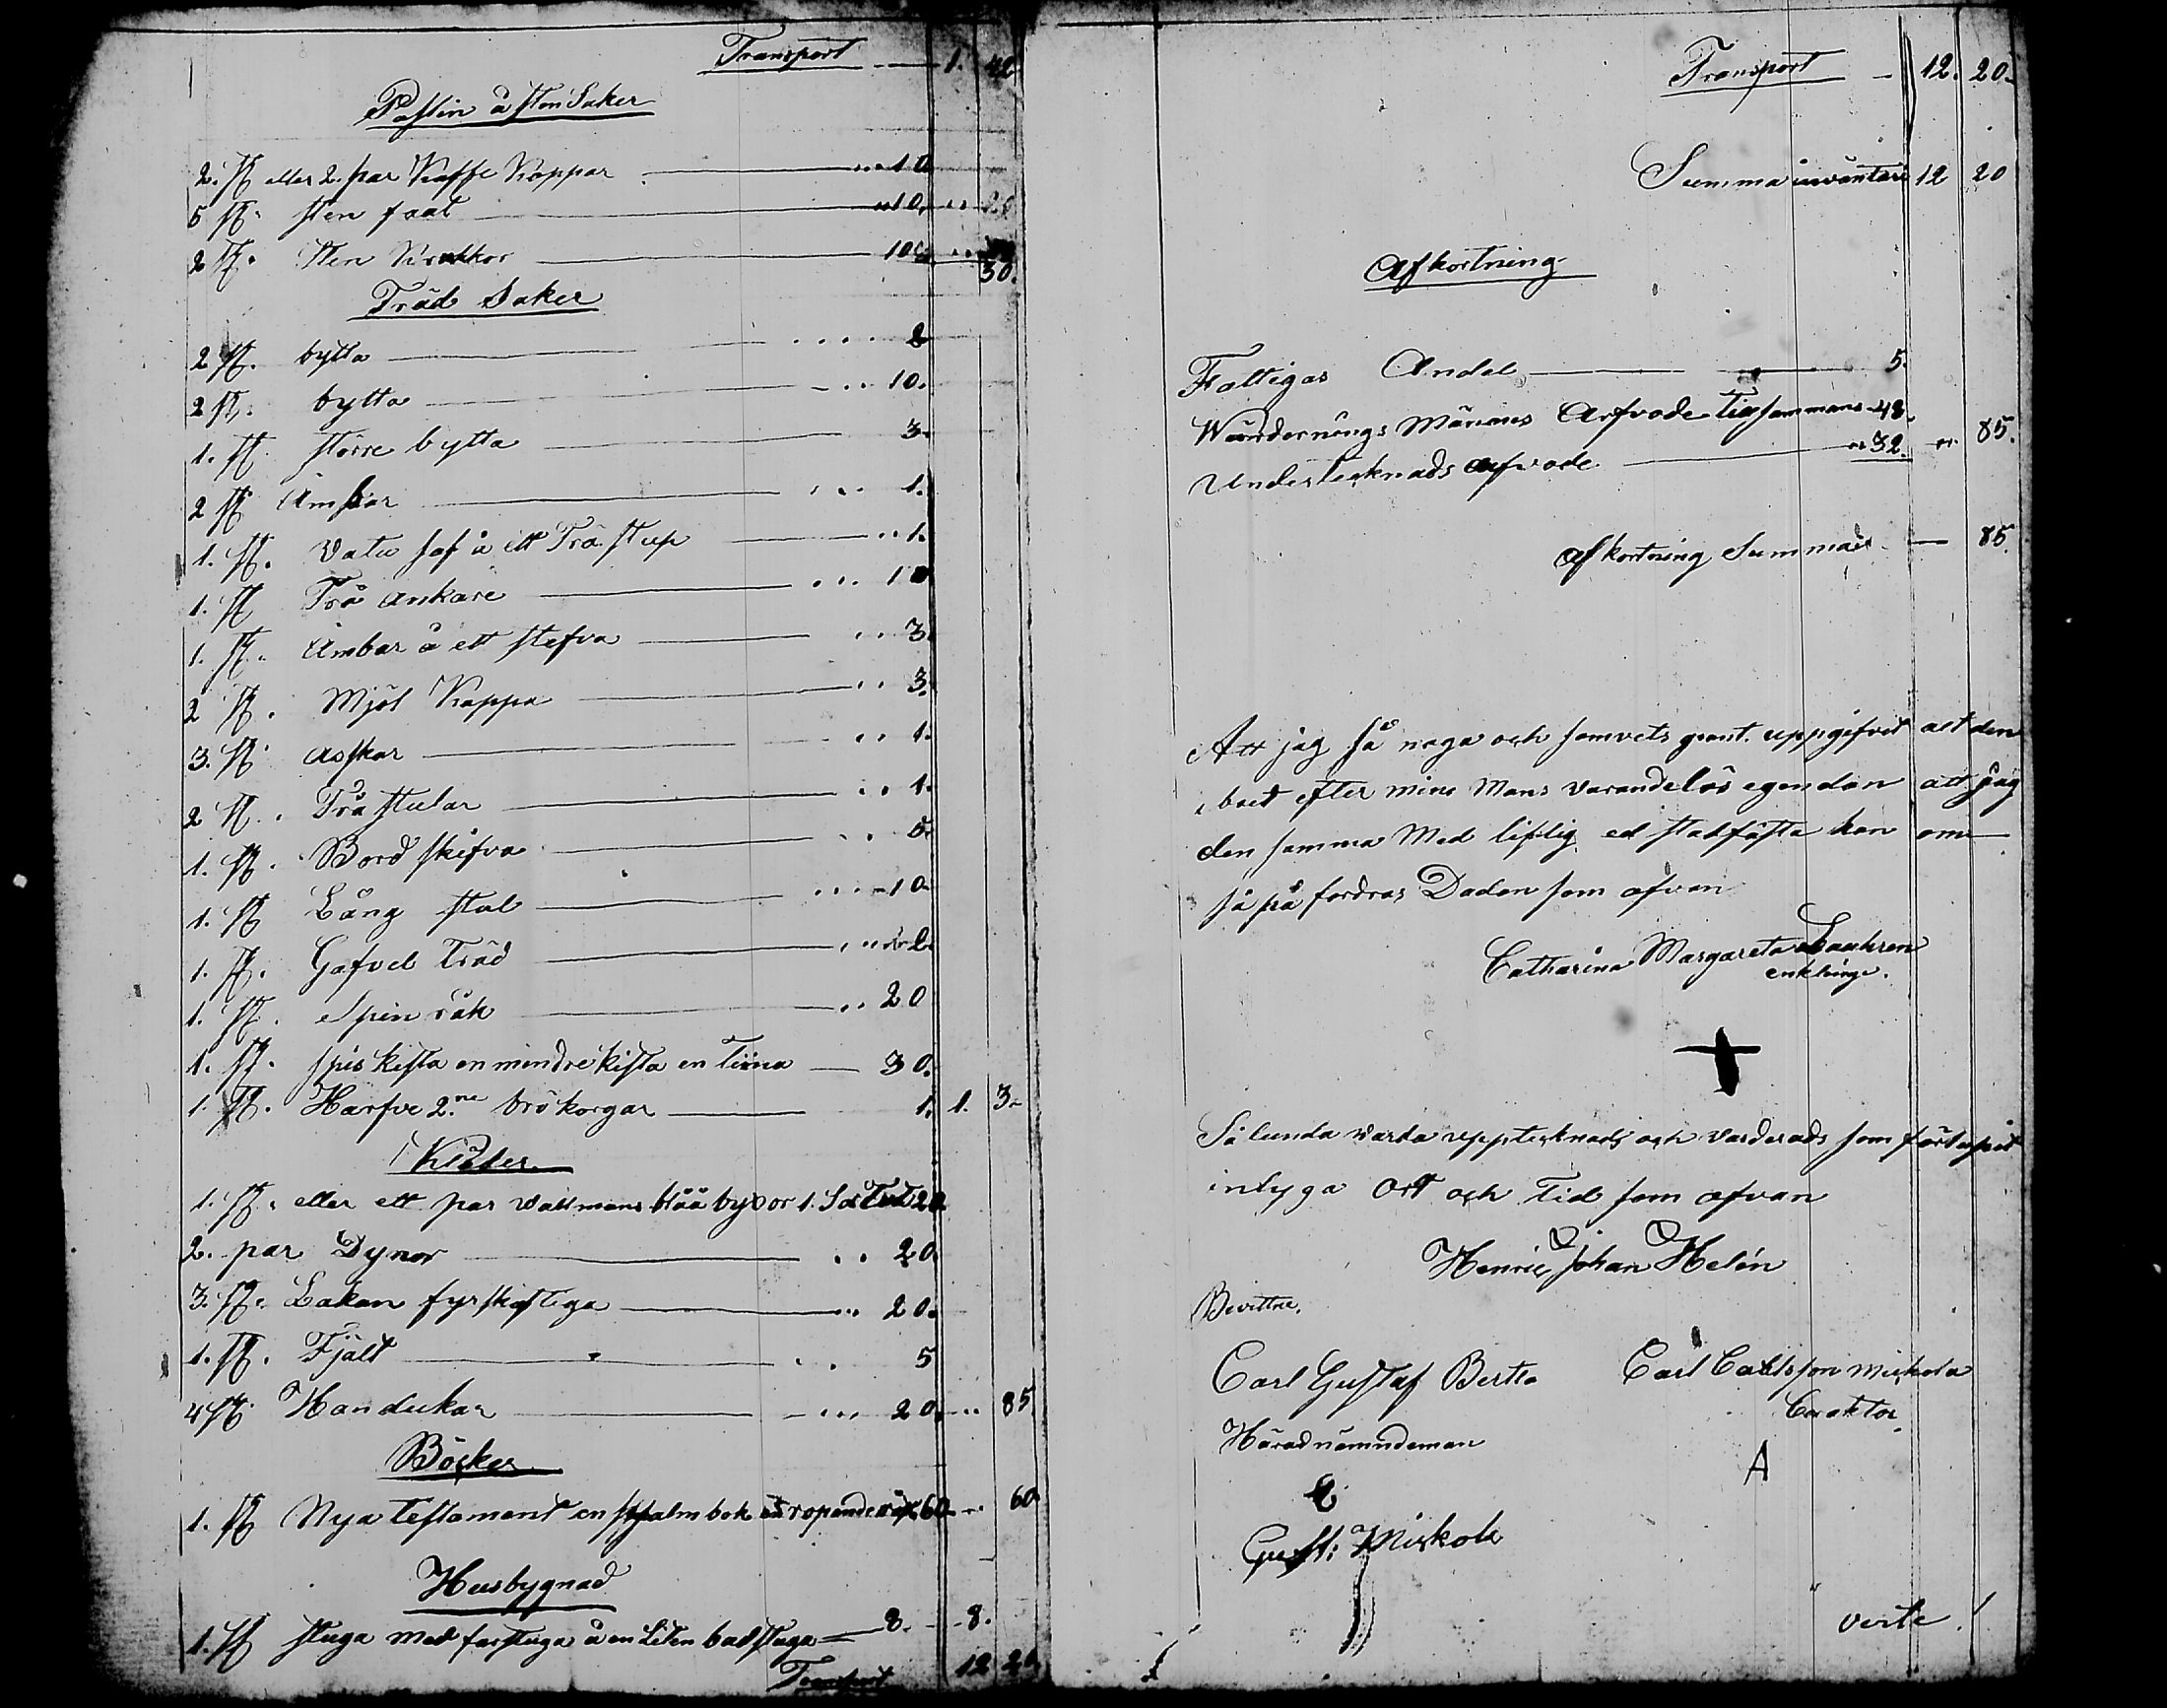 Transport — 1. 42
Postin å sten Saker
2. st eller 2. par Kaffe Koppar — 10
5 st. sten faat — 10.
2 st. Sten Krukkor — 10 30.
Träd Saker
2 st. bytta — 2
2 st. bytta — 10.
1. st. större bytta — 3.
2 st. Ämbar — 1.
1. st. Vatu saf å ett Trä stup — 1.
1. st Trä ankare — 10
1. st. Ämbar å ett stefva — 3.
2 st. Mjöl Kappa — 3.
3. st. asskar — 1.
2 st. Trä stular — 1.
1. st. Bord skifva — 5.
1. st Lång stol — 10.
1. st. Gafvel Träd — 2.
1. st. Spin råk — 20
1. st. spis kista en mindre kista en tiina — 30.
1. st. Harfve 2.ne brökorgar — 1. 1. 3.
Kläder
1. st. eller ett par vallmans blåå byxor 1. 20
2. par Dynor — 20
3. st. Lakan fyrskaftiga — 20.
1. st. Fjält — 5
4 st. Handukar — 20. 85
Böcker
1. st Nya Testament en psalmbok en ropande röst 60 — 60
Husbygnad
1. st stuga med farstuga å en Liten badstuga — 8. 8.
Transport 12 20
Transport — 12. 20.
Summa inväntari 12 20
Afkortning
Fattigas Andel — 5.
Wärderings Männens Arfvode Tilsammans 48.
Undertecknads arfvode — 32. 85.
Afkortning Summa — 85.
Att jag så noga och samvets grant uppgifvit alt den
i boet efter mine Mans varande lös egendom att jag
den samma Med liflig ed stadfästa kan om
så på fordras Dadon som ofvan
Catharina Margareta
enklinge.
Så lunda varda upptecknads och varderads som
intyga Ort och Tid som ofvan
Henric Johan Helén
Bevittne.
Carl Gustaf Bertla Carl Carlsson Miskola
Curaktor.
Häradnämndeman
A
Gust: Miskola
verte